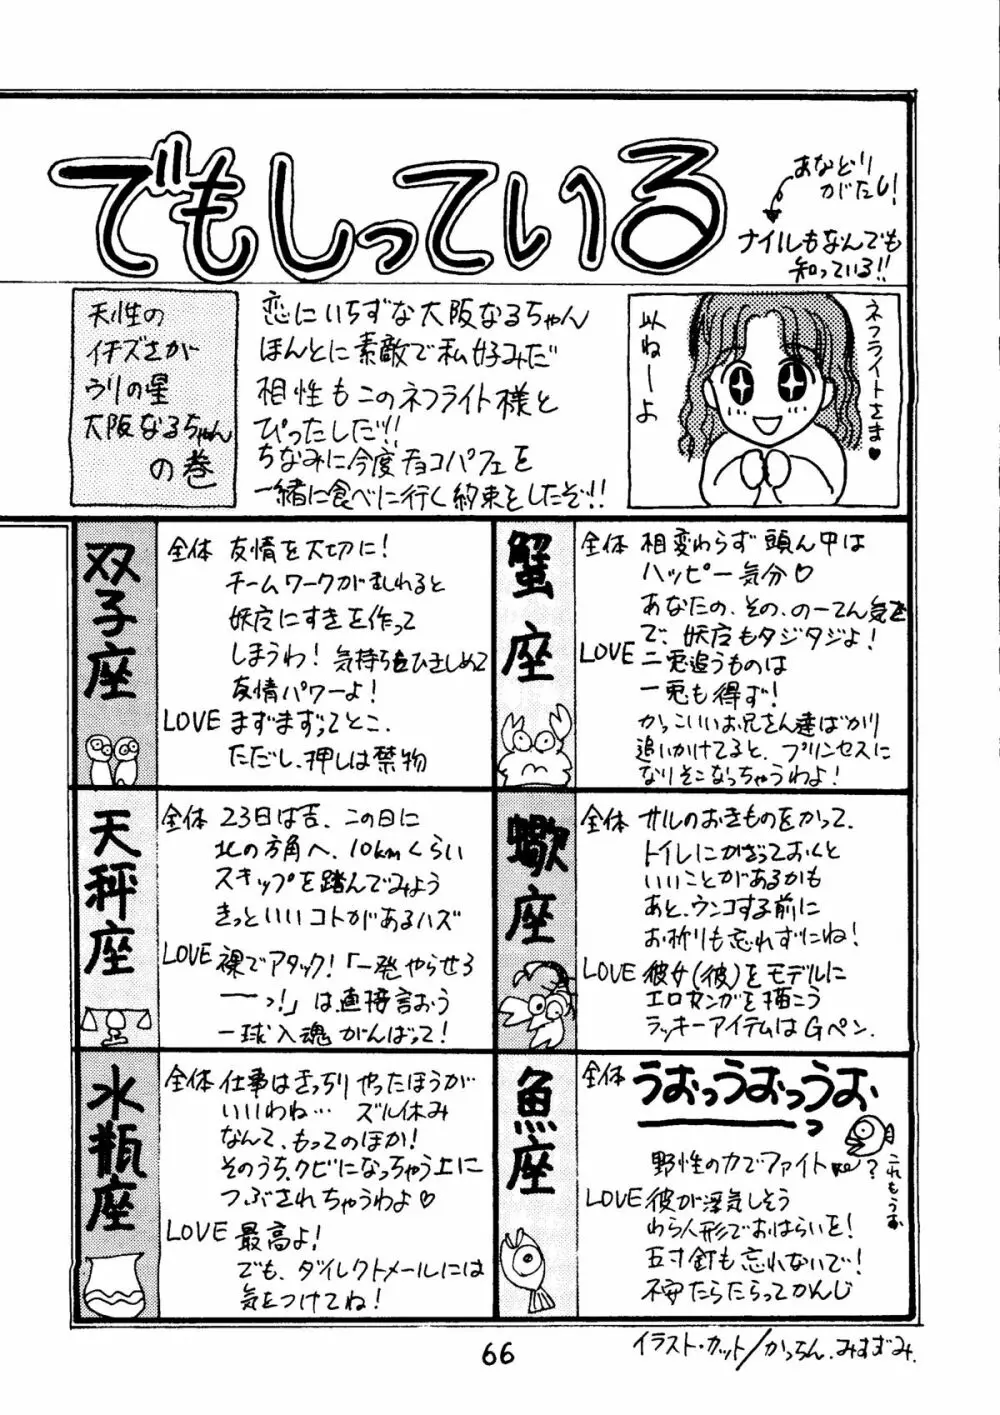 でもしっている
あなどり
がたし!
ナイルもなんでも
知っている!!
天性の
イチズさが
ウリの星
大阪なるちゃん
の巻
恋にいちずな大阪なるちゃん
ほんとに素敵で私好みだ
相性もこのネフライト様と
ぴったしだ!!
ちなみに今度チョコパフェを
一緒に食べに行く約束をしたぞ!!
ネフライトさま♥
以ねーよ
双子座
全体 友情を大切に!
チームワークが乱れると
妖魔にすきを作って
しまうわ! 気持ちをひきしめて
友情パワーよ!
LOVE まずまずってとこ.
ただし、押しは禁物
蟹座
全体 相変わらず頭ん中は
ハッピー気分♡
あなたの、その、のーてん気さ
で、妖魔もタジタジよ!
LOVE 二兎追うものは
一兎も得ず!
かっこいいお兄さん達ばかり
追いかけてると、プリンセスに
なりそこなっちゃうわよ!
天秤座
全体 23日は吉、この日に
北の方角へ、10kmくらい
スキップを踏んでみよう
きっといいコトがあるハズ
LOVE 裸でアタック!「一発やらせろ
ーっ!」は直接言おう
一球入魂がんばって!
蠍座
全体 サルのおきものをかって、
トイレにかざっておくと
いいことがあるかも
あと、ウンコする前に
お祈りも忘れずにね!
LOVE 彼女(彼)をモデルに
エロマンガを描こう
ラッキーアイテムはGペン.
水瓶座
全体 仕事はきっちりやったほうが
いいわね… ズル休み
なんて、もってのほか!
そのうち、クビになっちゃう上に
つぶされちゃうわよ♡
LOVE 最高よ!
でも、ダイレクトメールには
気をつけてね!
魚座
全体 うおっうおっうお
っ
野性の力でファイト
?
これもうお
LOVE 彼が浮気しそう
わら人形でおはらいを!
五寸釘も忘れないで!
不安たらたらってかんじ
66
イラスト・カット/かっちん.みすずみ.